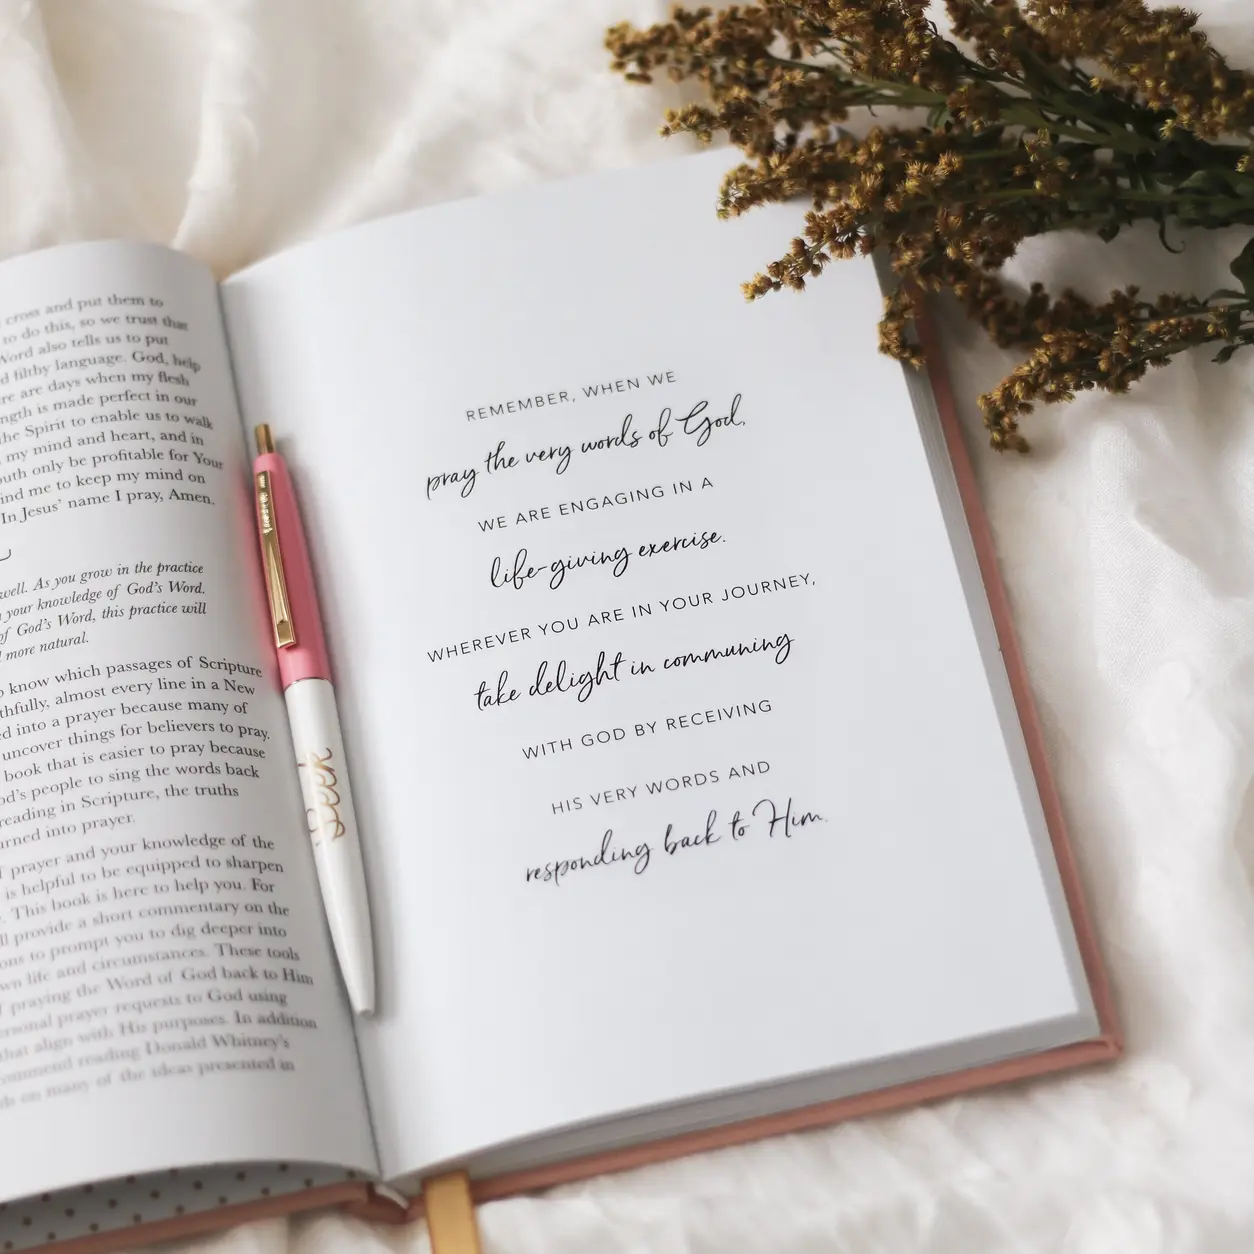 cross and put them to
to do this, so we trust that
Word also tells us to put
d filthy language. God, help
re are days when my flesh
ngth is made perfect in our
the Spirit to enable us to walk
my mind and heart, and in
outh only be profitable for Your
ind me to keep my mind on
In Jesus' name I pray, Amen.
well. As you grow in the practice
your knowledge of God's Word.
of God's Word, this practice will
more natural.
know which passages of Scripture
thfully, almost every line in a New
ed into a prayer because many of
uncover things for believers to pray.
book that is easier to pray because
od's people to sing the words back
reading in Scripture, the truths
urned into prayer.
prayer and your knowledge of the
is helpful to be equipped to sharpen
. This book is here to help you. For
ll provide a short commentary on the
ons to prompt you to dig deeper into
wn life and circumstances. These tools
praying the Word of God back to Him
ersonal prayer requests to God using
that align with His purposes. In addition
commend reading Donald Whitney's
ds on many of the ideas presented in
Seek
REMEMBER, WHEN WE
pray the very words of God,
WE ARE ENGAGING IN A
life-giving exercise.
WHEREVER YOU ARE IN YOUR JOURNEY,
take delight in communing
WITH GOD BY RECEIVING
HIS VERY WORDS AND
responding back to Him.